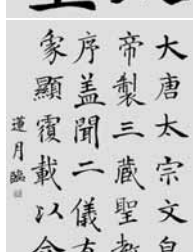 大唐太宗文皇
帝製三藏聖教
序蓋聞二儀有
象顯覆載以含
蓮月臨